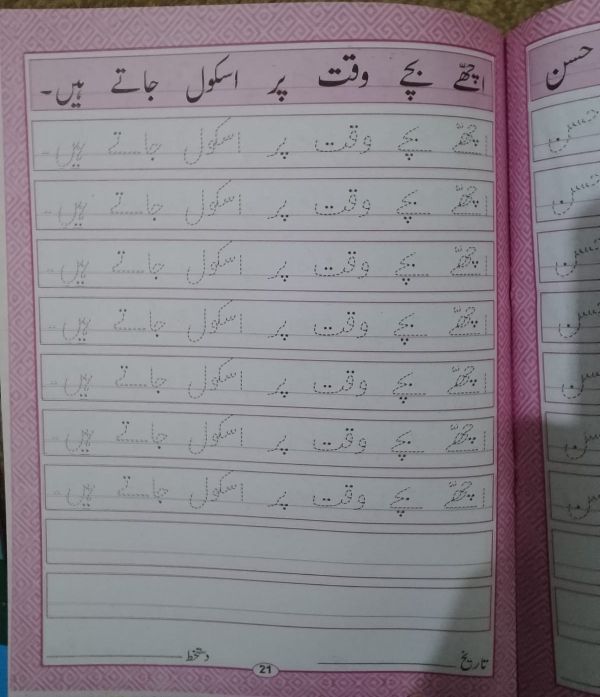 اچھّے بچے وقت پر اسکول جاتے ہیں۔
اچھّے بچے وقت پر اسکول جاتے ہیں۔
اچھّے بچے وقت پر اسکول جاتے ہیں۔
اچھّے بچے وقت پر اسکول جاتے ہیں۔
اچھّے بچے وقت پر اسکول جاتے ہیں۔
اچھّے بچے وقت پر اسکول جاتے ہیں۔
اچھّے بچے وقت پر اسکول جاتے ہیں۔
اچھّے بچے وقت پر اسکول جاتے ہیں۔
تاریخ ____________ دستخط ____________
21
حسن
حسن
حسن
حسن
حسن
حسن
حسن
حسن